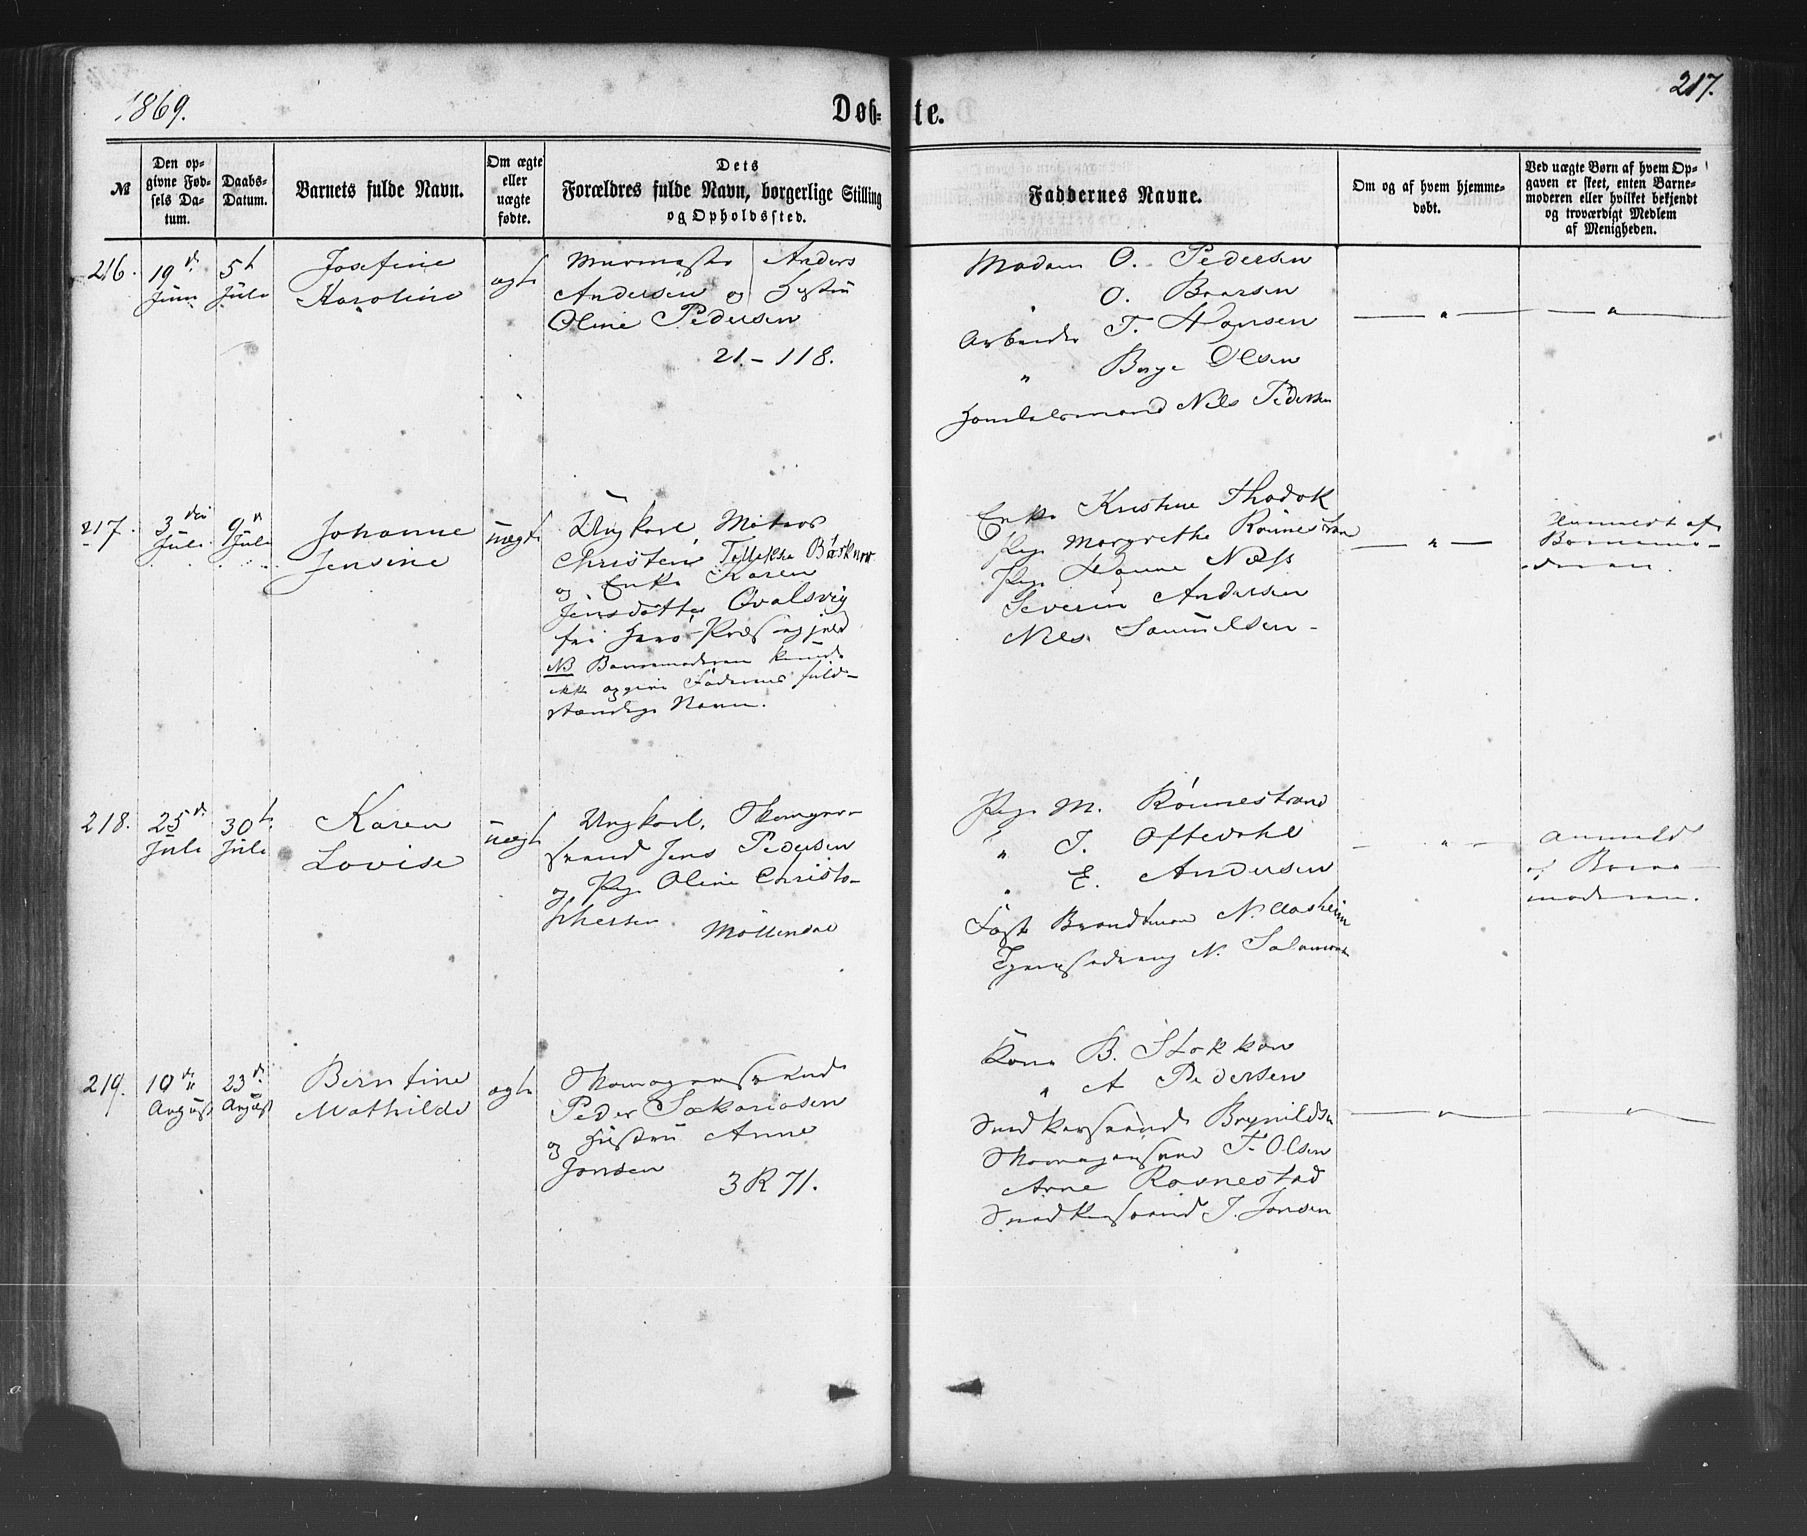 1869.
Døb-
te.
217.
№
Den opgivne Fødsels Datum.
Daabs-Datum.
Barnets fulde Navn.
Om ægte eller uægte fødte.
Dets Forældres fulde Navn, borgerlige Stilling og Opholdssted.
Faddernes Navne.
Om og af hvem hjemmedøbt.
Ved uægte Børn af hvem Opgaven er skeet, enten Barnemoderen eller hvilket bekjendt og troværdigt Medlem af Menigheden.
216.
19de Juni
5te Juli
Josefine
Karoline
ægte
Anders
Andersen og Hustru
Oline Pedersen
21.-118.
Madam O. Pedersen
" O. Baarsen
Arbeider T. Hansen
" Børge Olsen
Handelsmand Nils Pedersen
217.
3die Juli
9de Juli
Johanne
Jensine
uægte
Ungkarl, Matros
Christen
og Enke Karen
Jensdatter Qvalsvig
fra Herø Præstegjeld
NB Barnemoderen kunde
ikke opgive Faderens fuld-
stændige Navn.
Enke Kristine
Pige Margrethe Rønnestran
Pige Hanne Næss
Severin Andersen
Nils Samuelsen
Anmeldt af
Barnemo-
deren.
218.
25de Juli
30te Juli
Karen
Lovise
uægte
Ungkarl, Skomager-
svend Jens Pedersen
og Pige Oline Christo-
phersen
Møllendal
Pige M. Rønnestrand
" J. Oftedahl
" E. Andersen
Fast Brandtmand N. Aasheim
N. Salamons
Anmeldt
af Barne-
moderen.
219.
10de August
23de August
Berntine
Mathilde
ægte
Skomagersvend
Peder Sakariasen
og Hustru Anne
Jonsen
3 R 71.
Kone B. Stokkan
" A Pedersen
Snedkersvend Brynildsen
Skomagersvend T. Olsen
Arne Ravnestad
Snedkersvend J. Jonsen